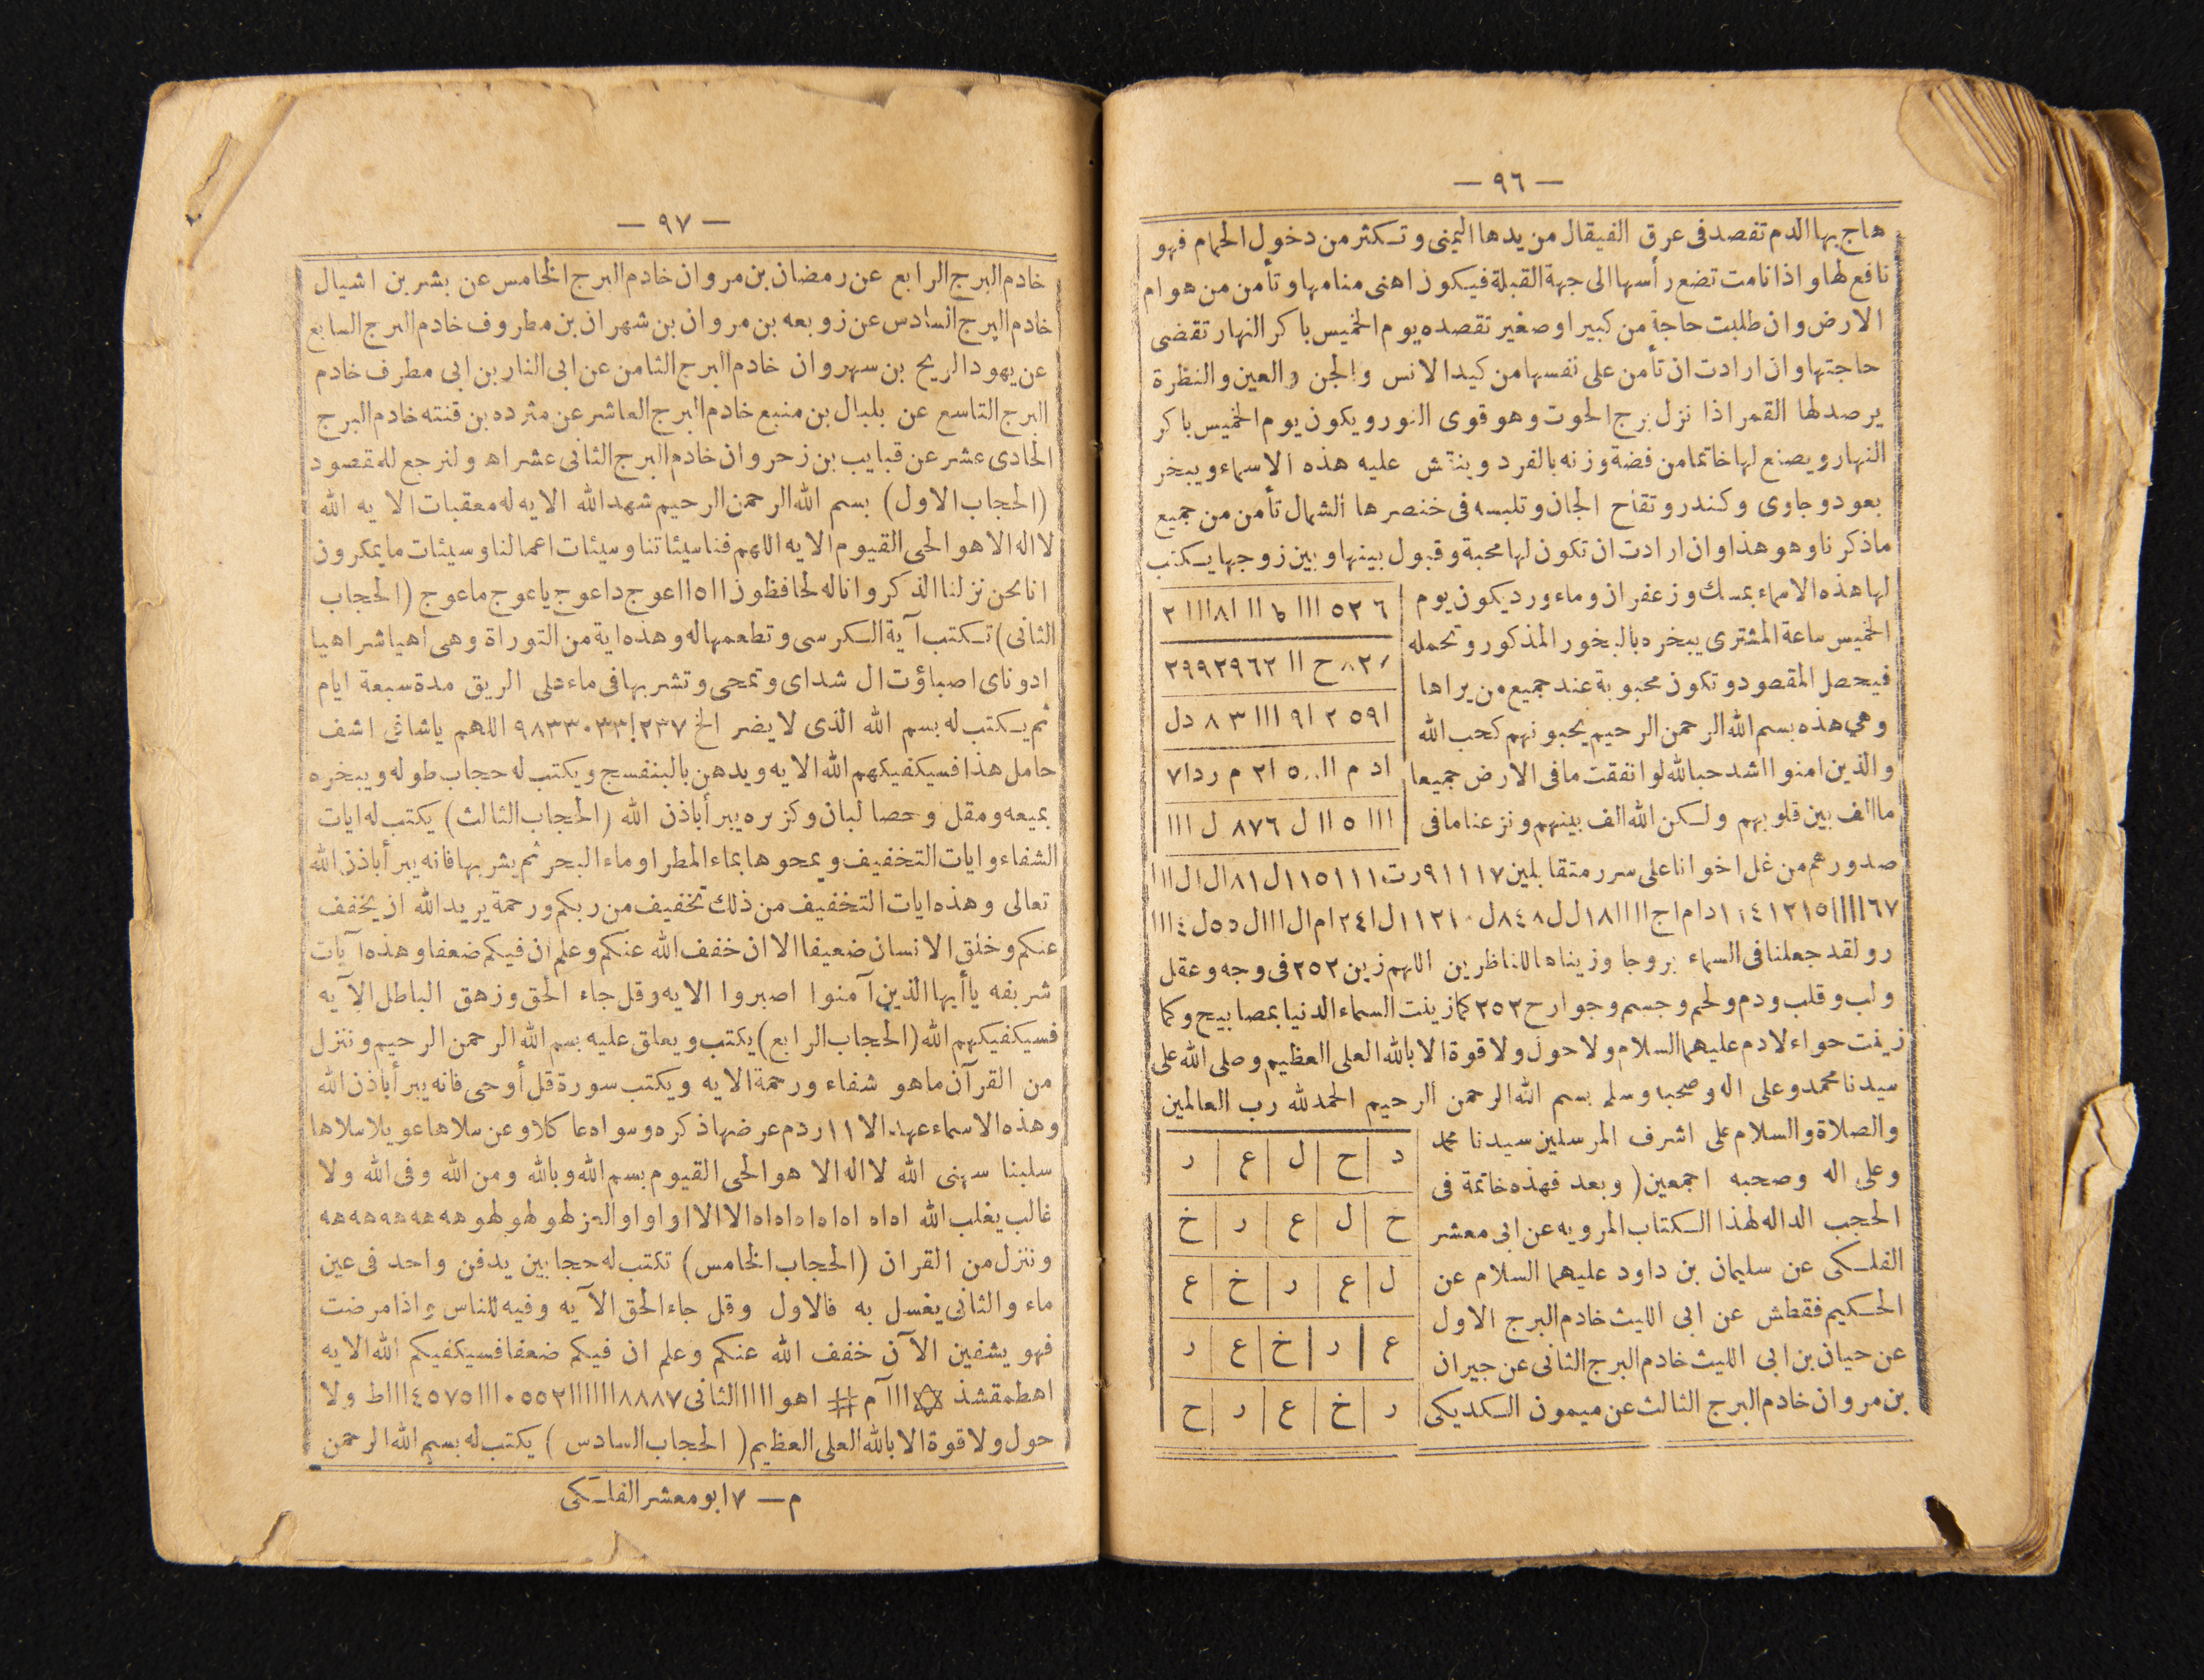 — ٩٦ —
هاج بها الدم تفصد فى عرق الفيقال من يدها اليمنى وتكثر من دخول الحمام فهو
نافع لها واذا نامت تضع رأسها الى جهة القبلة فيكون اهنى منامها وتأمن من هوام
الارض وان طلبت حاجة من كبير او صغير تقصده يوم الخميس باكر النهار تقضى
حاجتها وان ارادت ان تأمن على نفسها من كيد الانس والجن والعين والنظرة
يرصد لها القمر اذا نزل برج الحوت وهو قوى النور ويكون يوم الخميس باكر
النهار ويصنع لها خاتما من فضة وزنه بالفرد وينقش عليه هذه الاسماء ويبخر
بعود وجاوى وكندر وتفاح الجان وتلبسه فى خنصرها الشمال تأمن من جميع
ماذكرنا وهو هذا وان ارادت ان تكون لها محبة وقبول بينها وبين زوجها يكتب
لها هذه الاسماء بمسك وزعفران وماء ورد يكون يوم
الخميس ساعة المشترى يبخره بالبخور المذكور وتحمله
فيحصل المقصود وتكون محبوبة عند جميع من يراها
وهي هذه بسم الله الرحمن الرحيم يحبونهم كحب الله
والذين امنوا اشد حبا لله لو انفقت مافى الارض جميعا
ماالف بين قلوبهم ولكن الله الف بينهم ونزعنا مافى
٦ ٥٢ ااا ط اا ٨ا ااا ٢
٨٢ ح اا ٢٩٩٢٩٦٢
ا٥٩ ٢ ا٩ ااا ٣ ٨ دل
اد م اا ٥٠٠ ا٢ م ردا٧
ااا ٥ اا ل ٨٧٦ ل ااا
صدورهم من غل اخوانا على سرر متقابلين ٩١١١٧رت١١٥١١١ل٨١ال ال ااا
رولقد جعلنا فى السماء بروجا وزيناها للناظرين اللهم زين ٢٥٢ فى وجه وعقل
ولب وقلب ودم ولحم وجسم وجوارح ٢٥٢ كما زينت السماء الدنيا بمصابيح وكما
زينت حواء لادم عليهما السلام ولا حول ولا قوة الا بالله العلى العظيم وصلى الله على
سيدنا محمد وعلى اله وصحبه وسلم بسم الله الرحمن الرحيم الحمد لله رب العالمين
والصلاة والسلام على اشرف المرسلين سيدنا محمد
وعلى اله وصحبه اجمعين (وبعد فهذه خاتمة فى
الحجب الداله لهذا الكتاب المرويه عن ابى معشر
الفلكى عن سليمان بن داود عليهما السلام عن
الحكيم فقطش عن ابى الليث خادم البرج الاول
عن حيان بن ابى الليث خادم البرج الثانى عن جيران
بن مروان خادم البرج الثالث عن ميمون السكديكى
د ح ل ع ر
خ ل ع ر خ
ل ع ر خ ع
ع ر خ ع ر
ر خ ع ر ح
— ٩٧ —
خادم البرج الرابع عن رمضان بن مروان خادم البرج الخامس عن بشر بن اشيال
خادم البرج السادس عن زوبعه بن مروان بن شهران بن مطروف خادم البرج السابع
عن يهود الريح بن سهروان خادم البرج الثامن عن ابى النار بن ابى مطرف خادم
البرج التاسع عن بلبال بن منبع خادم البرج العاشر عن مثرده بن قنته خادم البرج
الحادى عشر عن قبايب بن زحروان خادم البرج الثانى عشر اه ولنرجع للمقصود
(الحجاب الاول) بسم الله الرحمن الرحيم شهد الله الايه له معقبات الايه الله
لا اله الا هو الحى القيوم الايه اللهم فنا سيئاتنا وسيئات اعمالنا وسيئات مايمكرون
انا نحن نزلنا الذكر وانا له لحافظون ااه ااعوج داعوج ياعوج ماعوج (الحجاب
الثانى) تكتب آية الكرسى وتطعمها له وهذه اية من التوراة وهى اهيا شراهيا
ادوناى اصباؤت ال شداى وتمحى وتشر بها فى ماء على الريق مدة سبعة ايام
ثم يكتب له بسم الله الذى لا يضر الخ ٩٨٣٣٠٣٣!٢٣٧ اللهم ياشافى اشف
حامل هذا فسيكفيكهم الله الايه ويدهن بالبنفسج ويكتب له حجاب طوله ويبخره
بميعه ومقل وحصا لبان وكزبره يبرأ باذن الله (الحجاب الثالث) يكتب له ايات
الشفاء وايات التخفيف ويمحوها بماء المطر او ماء البحر ثم يشربها فانه يبرأ باذن الله
تعالى وهذه ايات التخفيف من ذلك تخفيف من ربكم ورحمة يريد الله ان يخفف
عنكم وخلق الانسان ضعيفا الان خفف الله عنكم وعلم ان فيكم ضعفا وهذه آيات
شريفه ياأيها الذين آمنوا اصبروا الايه وقل جاء الحق وزهق الباطل الآيه
فسيكفيكهم الله (الحجاب الرابع) يكتب ويعلق عليه بسم الله الرحمن الرحيم وننزل
من القرآن ماهو شفاء ورحمة الايه ويكتب سورة قل أوحى فانه يبرأ باذن الله
وهذه الاسماء عهد الا ١١ ردم عرضها ذكره وسواه عا كلاو عن سلاها عويلا سلاها
سلبنا سهنى الله لا اله الا هو الحى القيوم بسم الله وبالله ومن الله وفى الله ولا
غالب يغلب الله اه اه اه اه اه اه اه الا الا او او او العز لهو لهو لهو هه هه هه هه هه
وننزل من القران (الحجاب الخامس) تكتب له حجابين يدفن واحد فى عين
ماء والثانى يغسل به فالاول وقل جاء الحق الآيه وفيه للناس واذا مرضت
فهو يشفين الآن خفف الله عنكم وعلم ان فيكم ضعفا فسيكفيكم الله الايه
اهطمقشذ ✡ ااا آم # اهو ااااا الثانى ٨٨٨٧ااااااا٠٥٥٢ااا٤٥٧٥اااط ولا
حول ولا قوة الا بالله العلى العظيم (الحجاب السادس) يكتب له بسم الله الرحمن
م — ٧ ابو معشر الفلكى